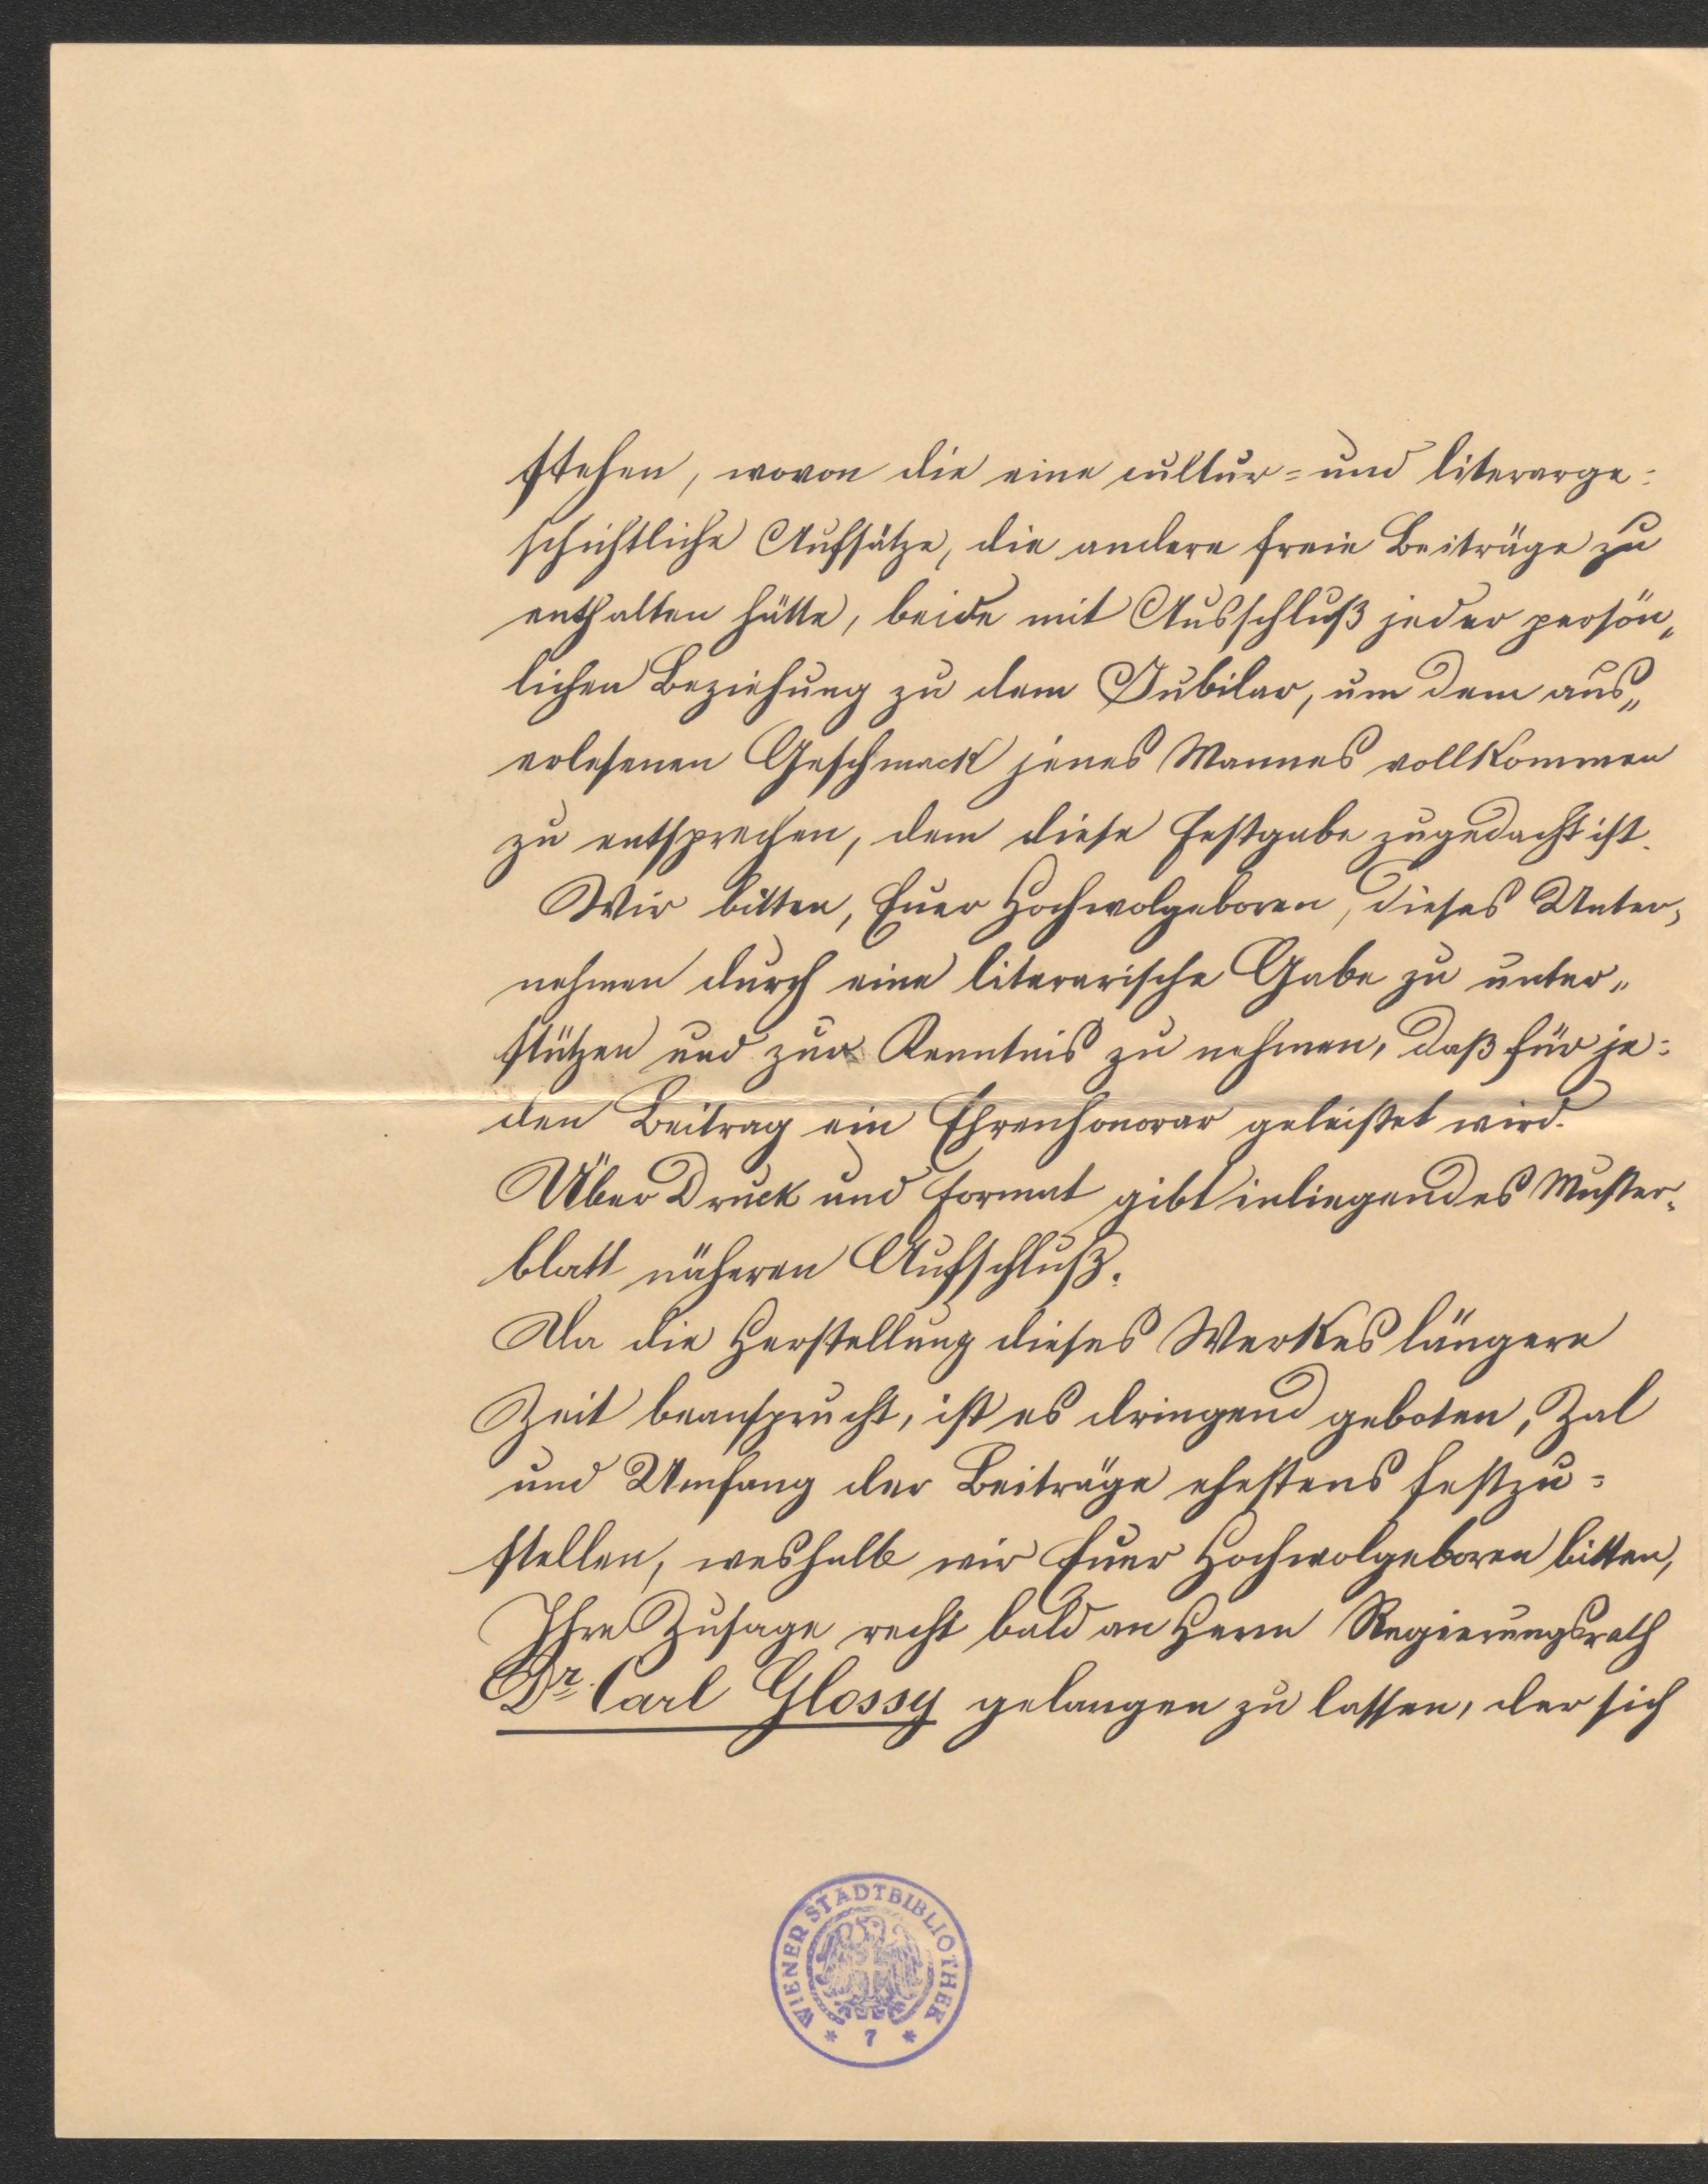 stehen, wovon die eine cultur- und literarge-
schichtliche Aufsätze, die andere freie Beiträge zu
enthalten hätte, beide mit Ausschluß jeder persön„
lichen Beziehung zu dem Jubilar, um dem aus„
erlesenen Geschmack jenes Mannes vollkommen
zu entsprechen, dem diese Festgabe zugedacht ist.
Wir bitten, Euer Hochwolgeboren, dieses Unter„
nehmen durch eine literarische Gabe zu unter„
stützen und zur Kenntnis zu nehmen, daß für je-
den Beitrag ein Ehrenhonorar geleistet wird.
Über Druck und Format gibt inliegendes Muster„
blatt näheren Aufschluß.
Da die Herstellung dieses Werkes längere
Zeit beansprucht, ist es dringend geboten, Zal
und Umfang der Beiträge ehestens festzu-
stellen, weshalb wir Euer Hochwolgeboren bitten,
Ihre Zusage recht bald an Herrn Regierungsrath
Dr. Carl Glossy gelangen zu lassen, der sich
WIENER STADTBIBLIOTHEK
* 7 *